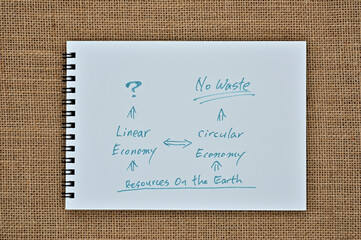 ?
No Waste
Linear
Economy
Circular
Economy
Resources On the Earth